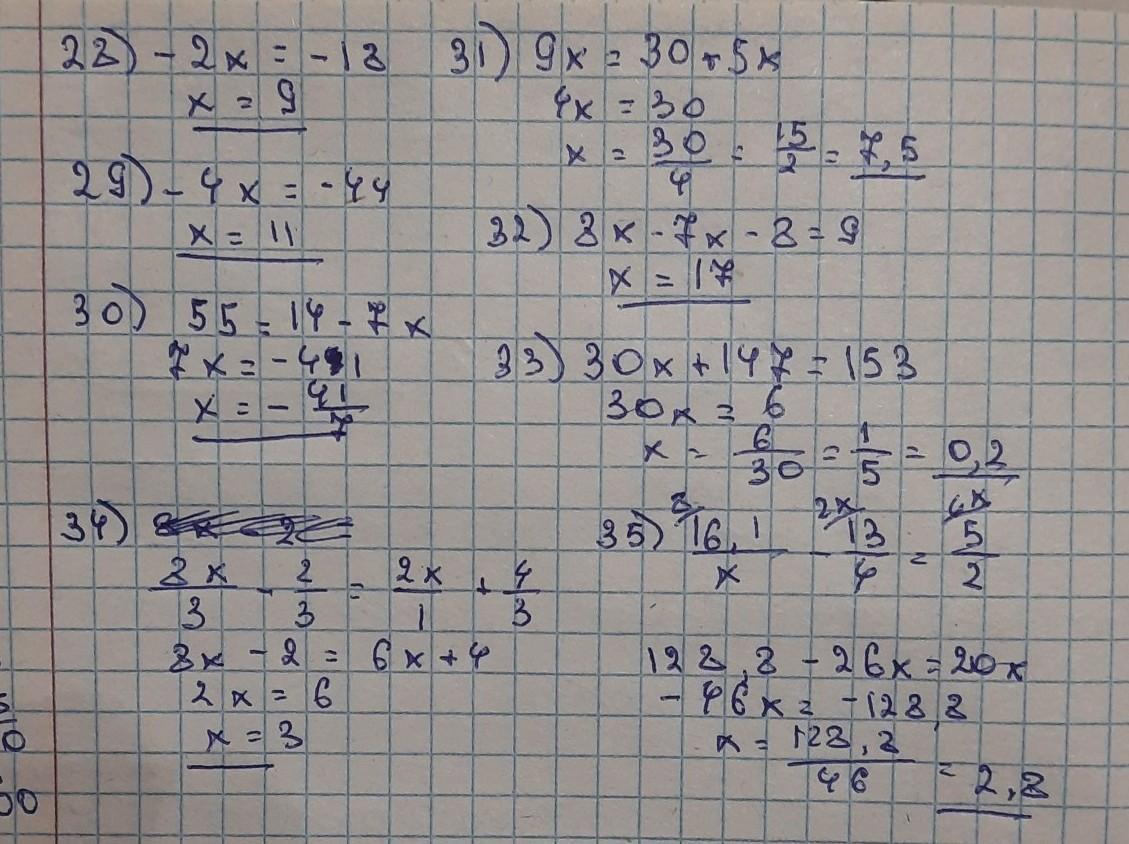 28) - 2x = -18
x = 9
29) - 4x = -44
x = 11
30) 55 = 14 - 7x
7x = -41
x = - 41/7
34)
8x/3 - 2/3 = 2x/1 + 4/3
8x - 2 = 6x + 4
2x = 6
x = 3
31) 9x = 30 + 5x
4x = 30
x = 30/4 = 15/2 = 7,5
32) 8x - 7x - 8 = 9
x = 17
33) 30x + 147 = 153
30x = 6
x = 6/30 = 1/5 = 0,2
8/ 2x/ 4x/
35) 16,1/x - 13/4 = 5/2
128,8 - 26x = 20x
- 46x = -128,8
x = 128,8/46 = 2,8